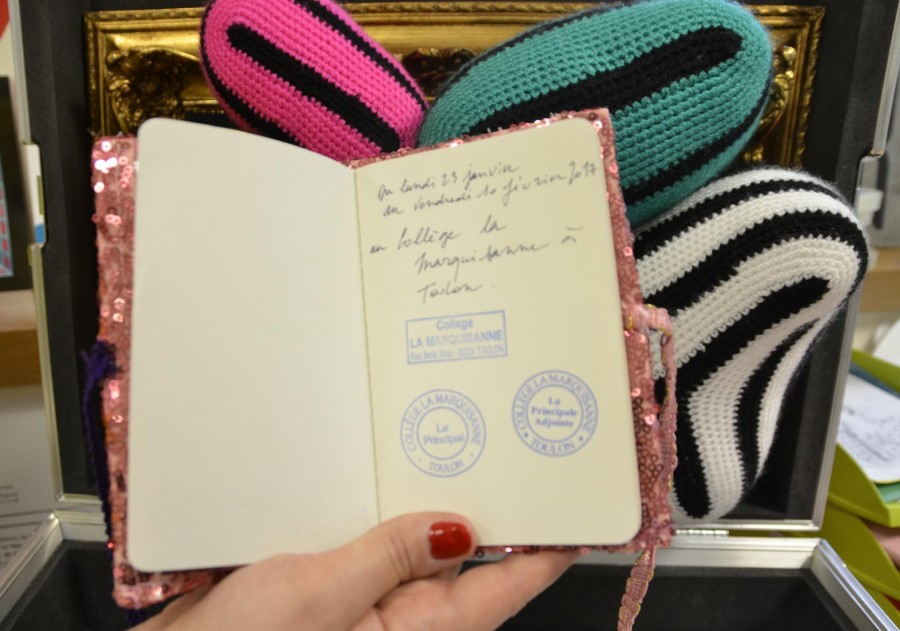 Du lundi 23 janvier
au vendredi 10 février 2017
au Collège la
Marquisanne à
Toulon.
Collège
LA MARQUISANNE
TOULON
COLLEGE LA MARQUISANNE
Le
Principal
TOULON
COLLEGE LA MARQUISANNE
La
Principale
Adjointe
TOULON